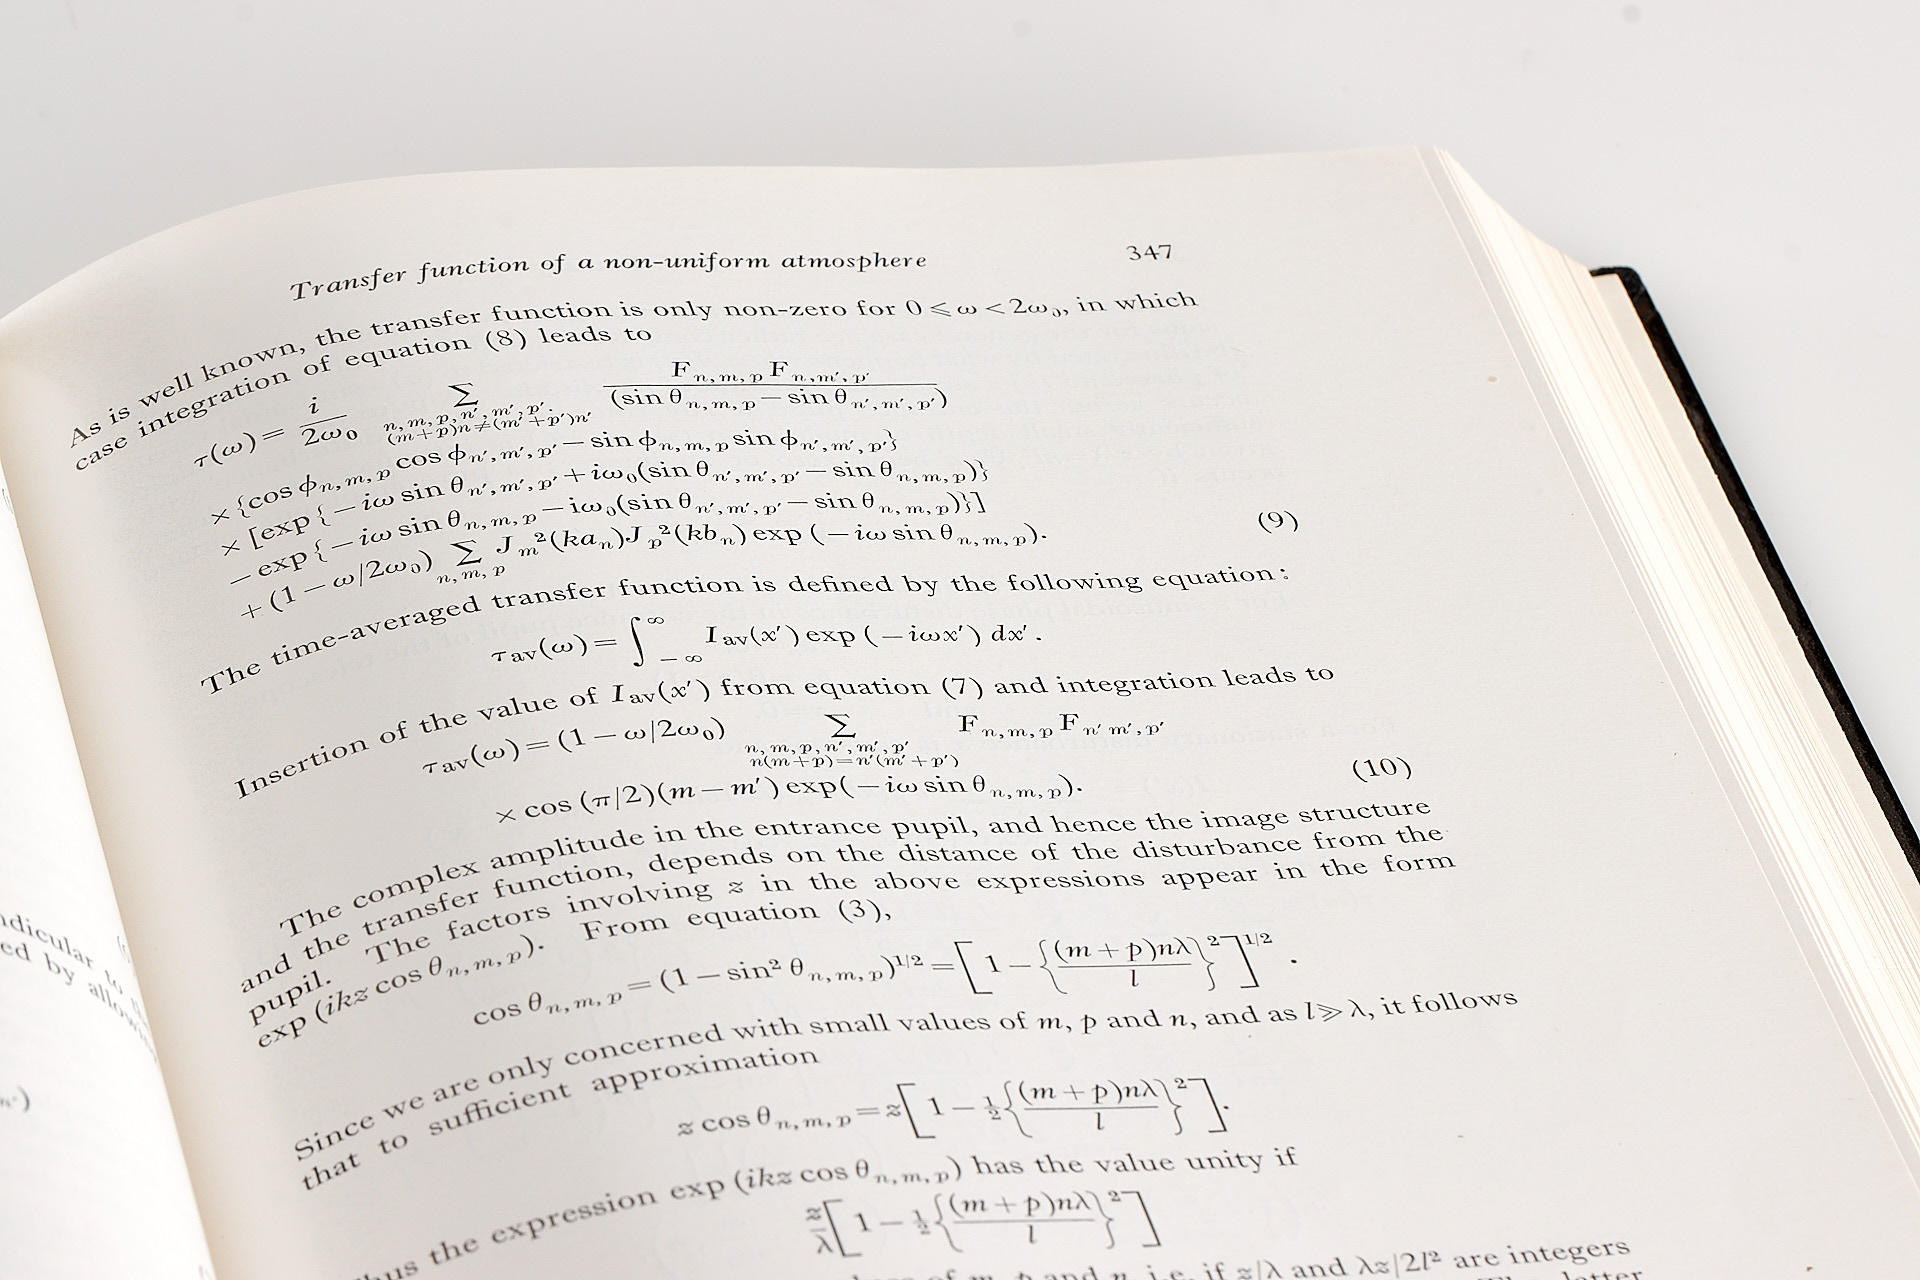 Transfer function of a non-uniform atmosphere 347
As is well known, the transfer function is only non-zero for 0 ⩽ ω < 2ω₀, in which
case integration of equation (8) leads to
τ(ω) = i/2ω₀ Σ_{n, m, p, n′, m′, p′. (m+p)n≠(m′+p′)n′} F_{n, m, p} F_{n, m′, p′} / (sin θ_{n, m, p} − sin θ_{n′, m′, p′})
× {cos ϕ_{n, m, p} cos ϕ_{n′, m′, p′} − sin ϕ_{n, m, p} sin ϕ_{n′, m′, p′}}
× [exp {−iω sin θ_{n′, m′, p′} + iω₀(sin θ_{n′, m′, p′} − sin θ_{n, m, p})}
− exp {−iω sin θ_{n, m, p} − iω₀(sin θ_{n′, m′, p′} − sin θ_{n, m, p})}]
+ (1 − ω/2ω₀) Σ_{n, m, p} J_m²(ka_n)J_p²(kb_n) exp (−iω sin θ_{n, m, p}). (9)
The time-averaged transfer function is defined by the following equation:
τ_av(ω) = ∫_{−∞}^{∞} I_av(x′) exp (−iωx′) dx′.
Insertion of the value of I_av(x′) from equation (7) and integration leads to
τ_av(ω) = (1 − ω/2ω₀) Σ_{n, m, p, n′, m′, p′ n(m+p)=n′(m′+p′)} F_{n, m, p} F_{n′ m′, p′}
× cos (π/2)(m − m′) exp(−iω sin θ_{n, m, p}). (10)
The complex amplitude in the entrance pupil, and hence the image structure
and the transfer function, depends on the distance of the disturbance from the
pupil. The factors involving z in the above expressions appear in the form
exp (ikz cos θ_{n, m, p}). From equation (3),
cos θ_{n, m, p} = (1 − sin² θ_{n, m, p})^{1/2} = [1 − {(m + p)nλ / l}²]^{1/2}.
Since we are only concerned with small values of m, p and n, and as l ≫ λ, it follows
that to sufficient approximation
z cos θ_{n, m, p} = z[1 − ½{(m + p)nλ / l}²].
the expression exp (ikz cos θ_{n, m, p}) has the value unity if
z/λ [1 − ½{(m + p)nλ / l}²]
of m, p and n, i.e. if z/λ and λz/2l² are integers
latter
to
ed by